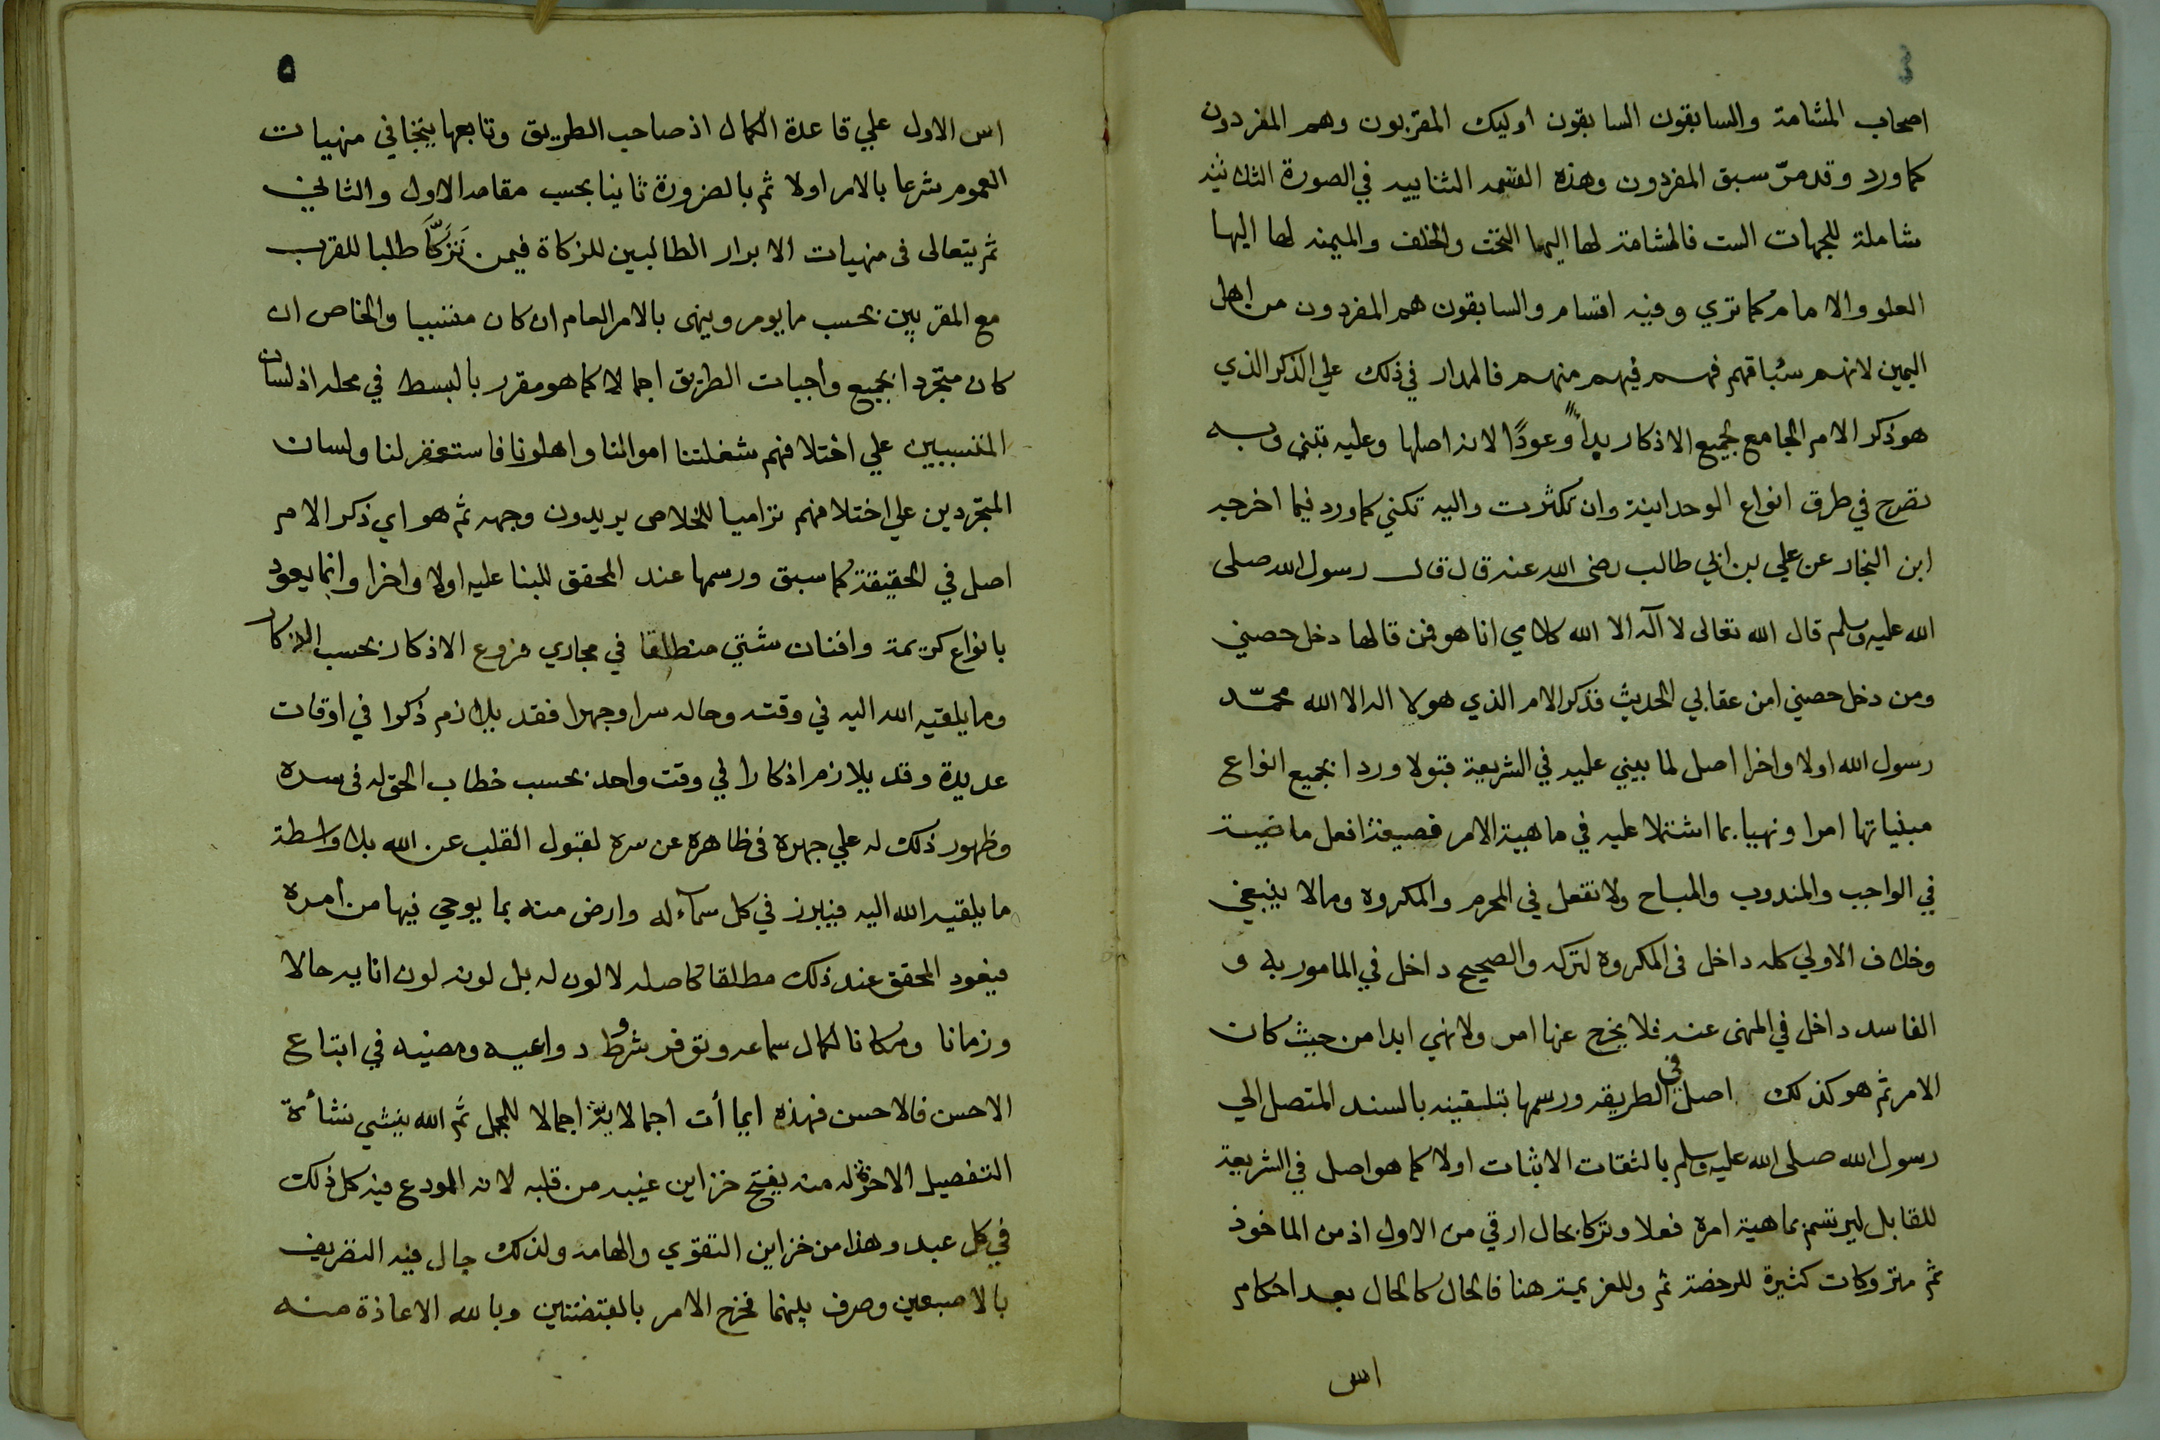 ٤
اصحاب المشامة والسابقون السابقون اوليك المقربون وهم المفردون
كما ورد وقد مرّ سبق المفردون وهذه القسمه الثناييه في الصورة الثلاثيه
شاملة للجهات الست فالمشامة لها اليها التحت والخلف والميمنه لها اليها
العلو والامام كما تري وفيه اقسام والسابقون هم المفردون من اهل
اليمين لانهم سُبّاقهم فهم فيهم منهم فالمدار في ذلك علي الذكر الذي
هو ذكر الامر الجامع لجميع الاذكار بدأً وعودًا لانه اصلها وعليه تبني وبه
تصرح في طرق انواع الوحدانية وان تكثرت واليه تكني كما ورد فيما اخرجه
ابن النجار عن علي بن ابي طالب رضى الله عنه قال قال رسول الله صلى
الله عليه وسلم قال الله تعالى لا اله الا الله كلامي انا هو فمن قالها دخل حصني
ومن دخل حصني امن عقابي الحديث فذكر الامر الذي هو لا اله الا الله محمّد
رسول الله اولا واخرا اصل لما يبني عليه في الشريعة قبولا وردا بجميع انواع
مبنياتها امرا ونهيا بما اشتملا عليه في ماهية الامر فصيغة افعل ماضية
في الواجب والمندوب والمباح ولا تفعل في المحرم والمكروه ومالا ينبغي
وخلاف الاولي كله داخل في المكروه لتركه والصحيح داخل في المامور به و
الفاسد داخل في المنهى عنه فلا يخرج عنها امر ولا نهي ابدا من حيث كان
الامر ثم هو كذلك اصل في الطريقه ورسمها بتلقينه بالسند المتصل الي
رسول الله صلى الله عليه وسلم بالثقات الاثبات اولا كما هو اصل في الشريعة
للقابل ليرتسم بماهية امره فعلا وتركا بحال ارقي من الاول اذ من الماخوذ
ثم متروكات كثيرة للرخصة ثم وللعزيمة هنا فالحال كالحال بعد احكام
اس
٥
اس الاول علي قاعدة الكمال اذ صاحب الطريق وتابعها يتجافي منهيات
العموم شرعا بالامر اولا ثم بالضرورة ثانيا بحسب مقامه الاول والثاني
ثم يتعالى فى منهيات الابرار الطالبين للزكاة فيمن تَزَكَّا طلبا للقرب
مع المقربين بحسب ما يومر وينهى بالامر العام ان كان متسببا والخاص ان
كان متجردا بجميع واجبات الطريق اجمالا كما هو مقرر بالبسط في محله اذ لسان
المتسببين علي اختلافهم شغلتنا اموالنا واهلونا فاستغفر لنا ولسان
المتجردين علي اختلافهم تراميا للخلاص يريدون وجهه ثم هو اي ذكر الامر
اصل في الحقيقة كما سبق ورسمها عند المحقق للبنا عليه اولا واخرا وانما يعود
بانواع كريمة وافنان شتي منطلقا في مجاري فروع الاذكار بحسب الاذكار
وما يلقيه الله اليه في وقته وحاله سرا وجهرا فقد يلازم ذكرا في اوقات
عديدة وقد يلازم اذكارا في وقت واحد بحسب خطاب الحق له فى سره
وظهور ذلك له علي جهره فى ظاهره عن سره لقبول القلب عن الله بلا واسطة
ما يلقيه الله اليه فيبرز في كل سمآء له وارض منه بما يوحي فيها من أمره
فيعود المحقق عند ذلك مطلقا كاصله لا لون له بل لونه لون انايه حالا
وزمانا ومكانا لكمال سماعه وتوفر شروط دواعيه ومضيه في اتباع
الاحسن فالاحسن فهذه ايماأت اجمالاية اجمالا للجمل ثم الله ينشي نشأة
التفصيل الاخرة له منه بفتح خزاين غيبه من قلبه لانه المودع فيه كل ذلك
في كل عبد وهذا من خزاين التقوي والهامه ولذلك جال فيه التصريف
بالاصبعين وصرف بينهما فخرج الامر بالقبضتين وبالله الاعاذة منه